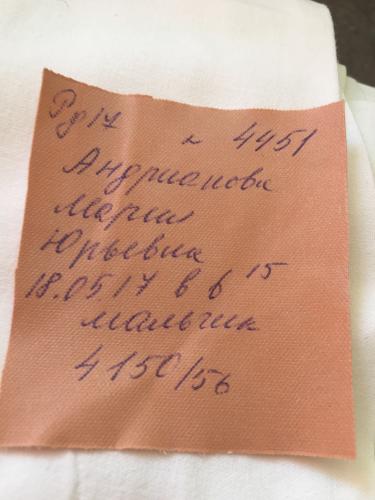 Рд 17 н 4451
Андрианова
Мария
Юрьевна
18.05.17 в 6 15
мальчик
4150/56